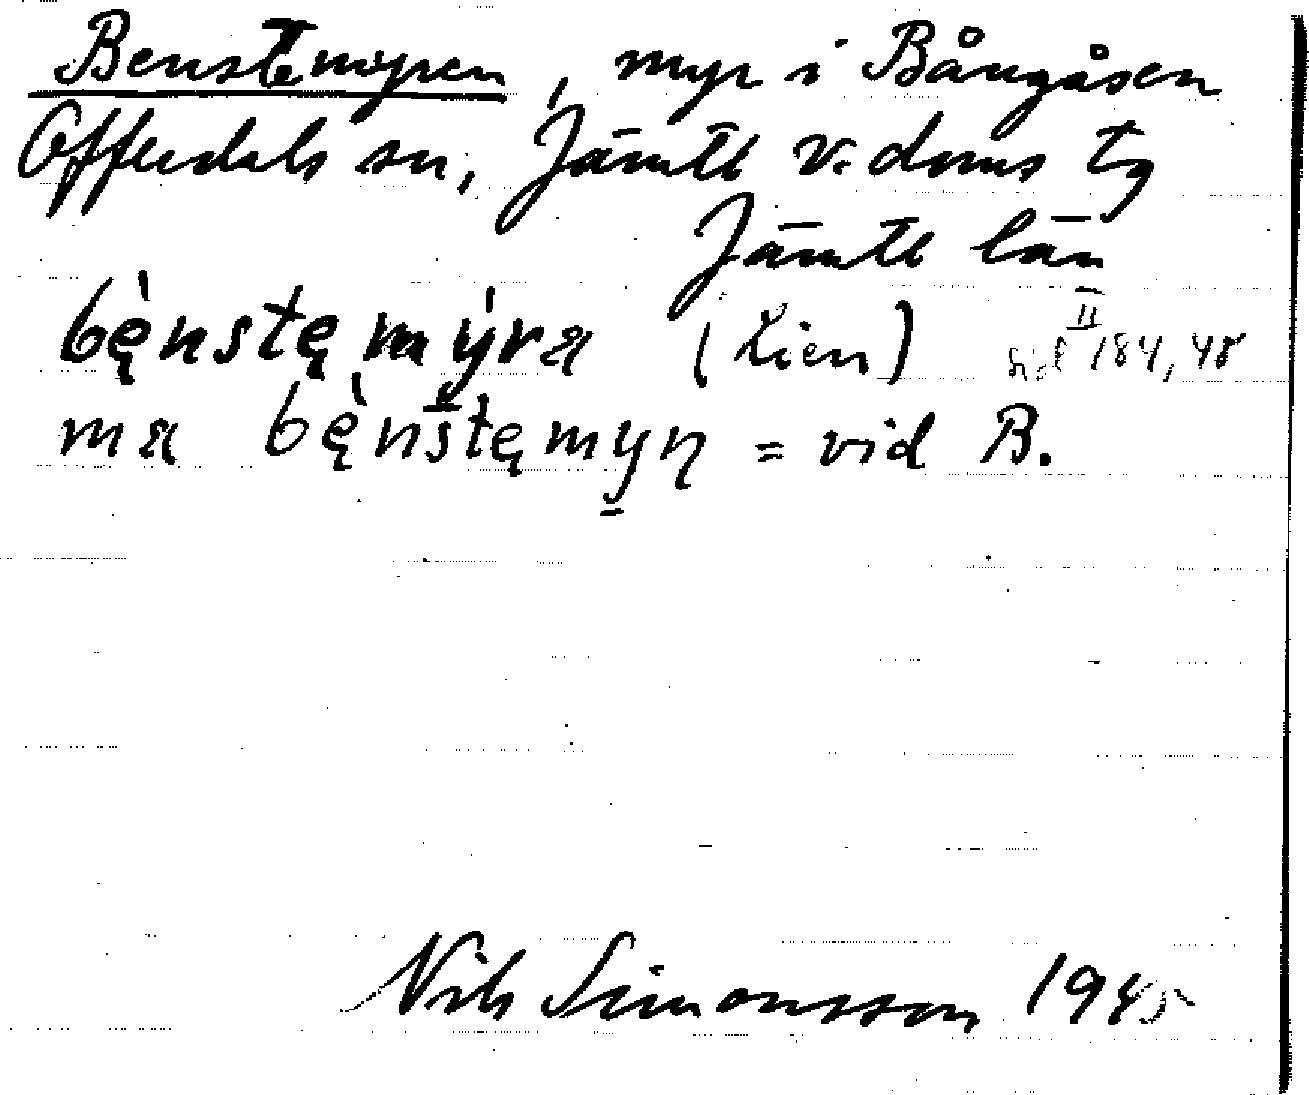 Benstemyren, myr i Bångåsen
Offerdals sn, Jämtl v. doms tg
Jämtl län
bę̀nstęmy̍ra (Lien) II 184,48
ma bę̀nstęmyn̥ = vid B.
Nils Simonsson 1945